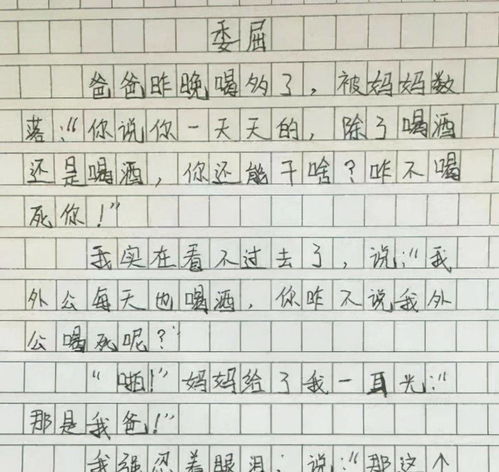 委屈
爸爸昨晚喝多了，被妈妈数
落：“你说你一天天的，除了喝酒
还是喝酒，你还能干啥？咋不喝
死你！”
我实在看不过去了，说：“我
外公每天也喝酒，你咋不说我外
公喝死呢？”
“啪！”妈妈给了我一耳光：“
那是我爸！”
我强忍着眼泪，说：“那这个